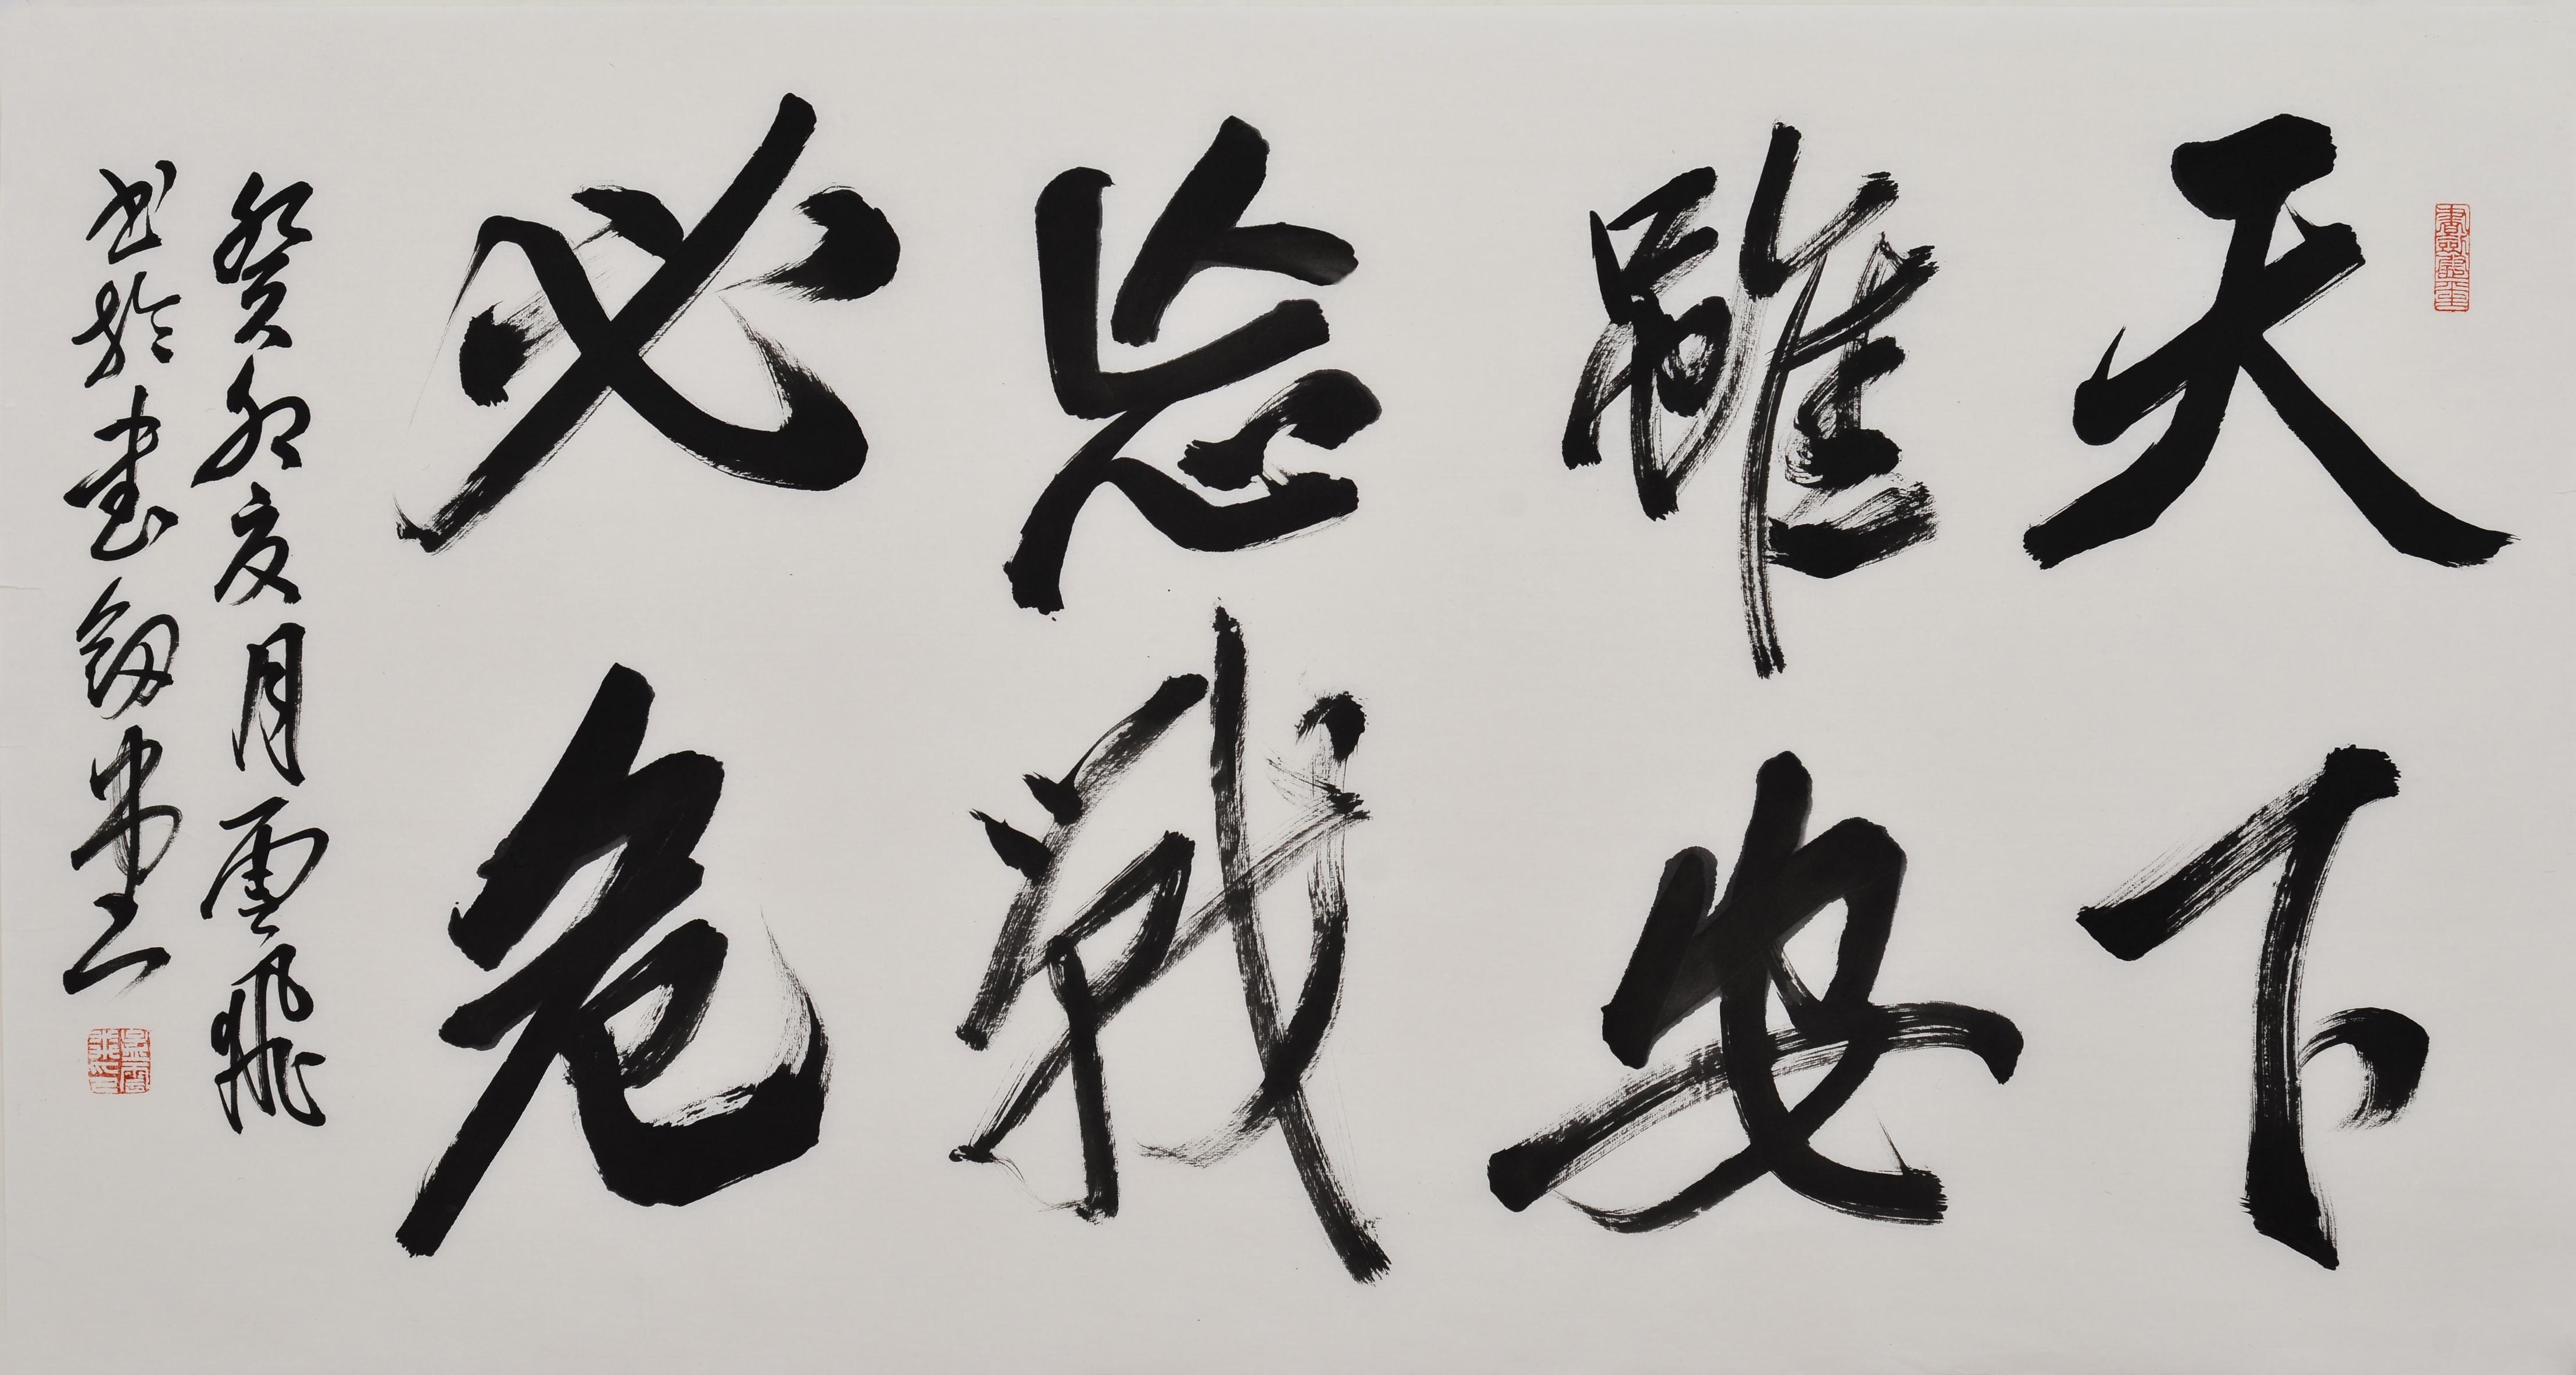 天下
雖安
忘戰
必危
癸卯夏月雲飛
書於書劍堂